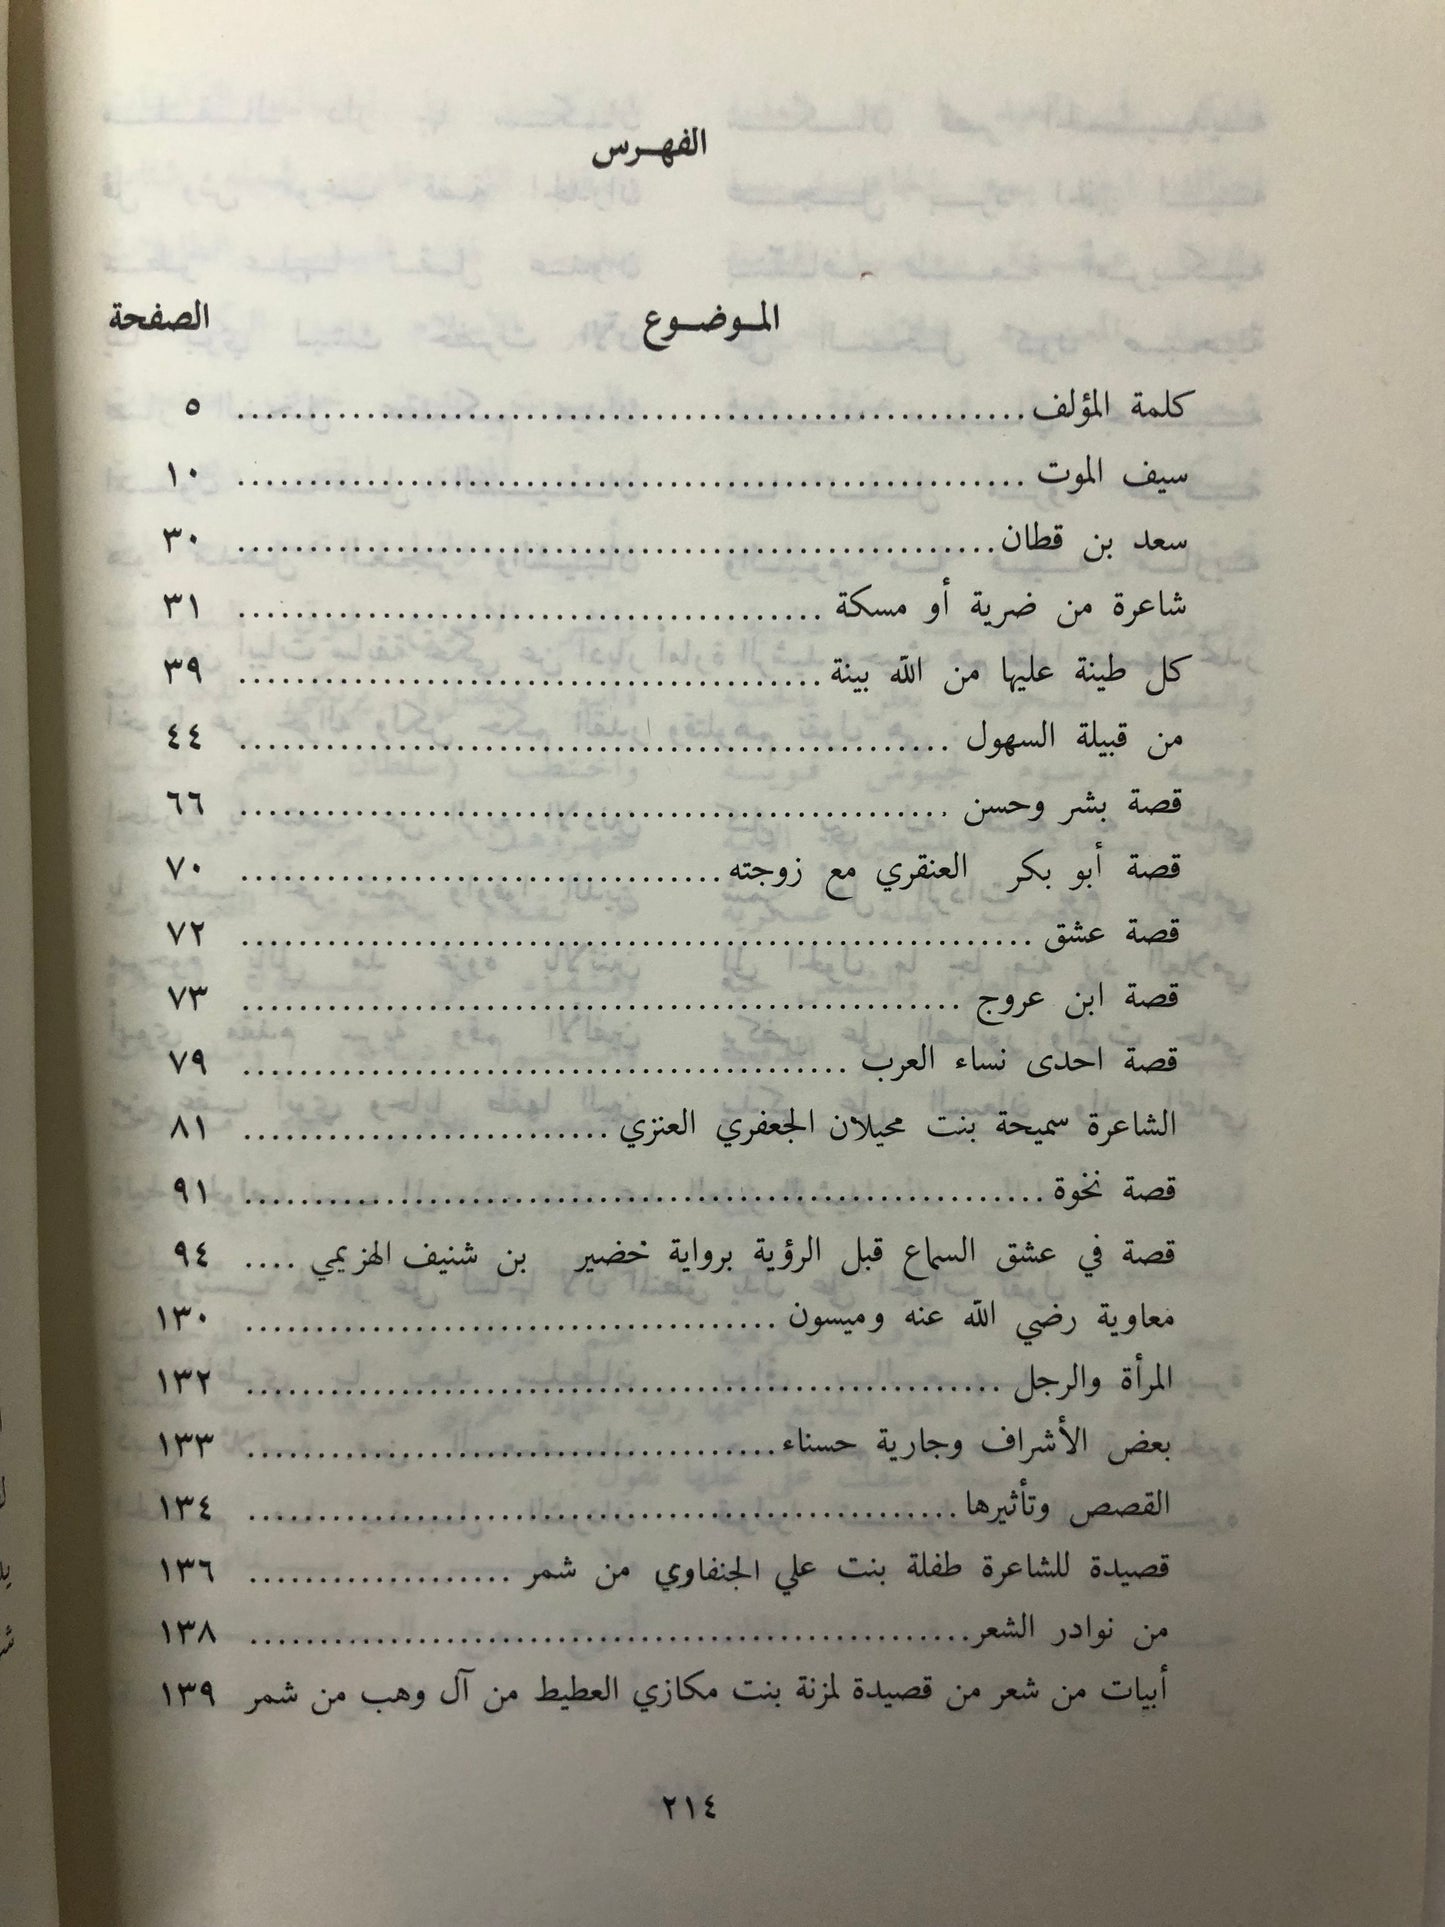 الفهرس
الموضوع الصفحة
كلمة المؤلف ٥
سيف الموت ١٠
سعد بن قطان ٣٠
شاعرة من ضرية أو مسكة ٣١
كل طينة عليها من الله بينة ٣٩
من قبيلة السهول ٤٤
قصة بشر وحسن ٦٦
قصة أبو بكر العنقري مع زوجته ٧٠
قصة عشق ٧٢
قصة ابن عروج ٧٣
قصة احدى نساء العرب ٧٩
الشاعرة سميحة بنت محيلان الجعفري العنزي ٨١
قصة نخوة ٩١
قصة في عشق السماع قبل الرؤية برواية خضير بن شنيف الهزيمي ٩٤
معاوية رضي الله عنه وميسون ١٣٠
المرأة والرجل ١٣٢
بعض الأشراف وجارية حسناء ١٣٣
القصص وتأثيرها ١٣٤
قصيدة للشاعرة طفلة بنت علي الجنفاوي من شمر ١٣٦
من نوادر الشعر ١٣٨
أبيات من شعر من قصيدة لمزنة بنت مكازي العطيط من آل وهب من شمر ١٣٩
٢١٤